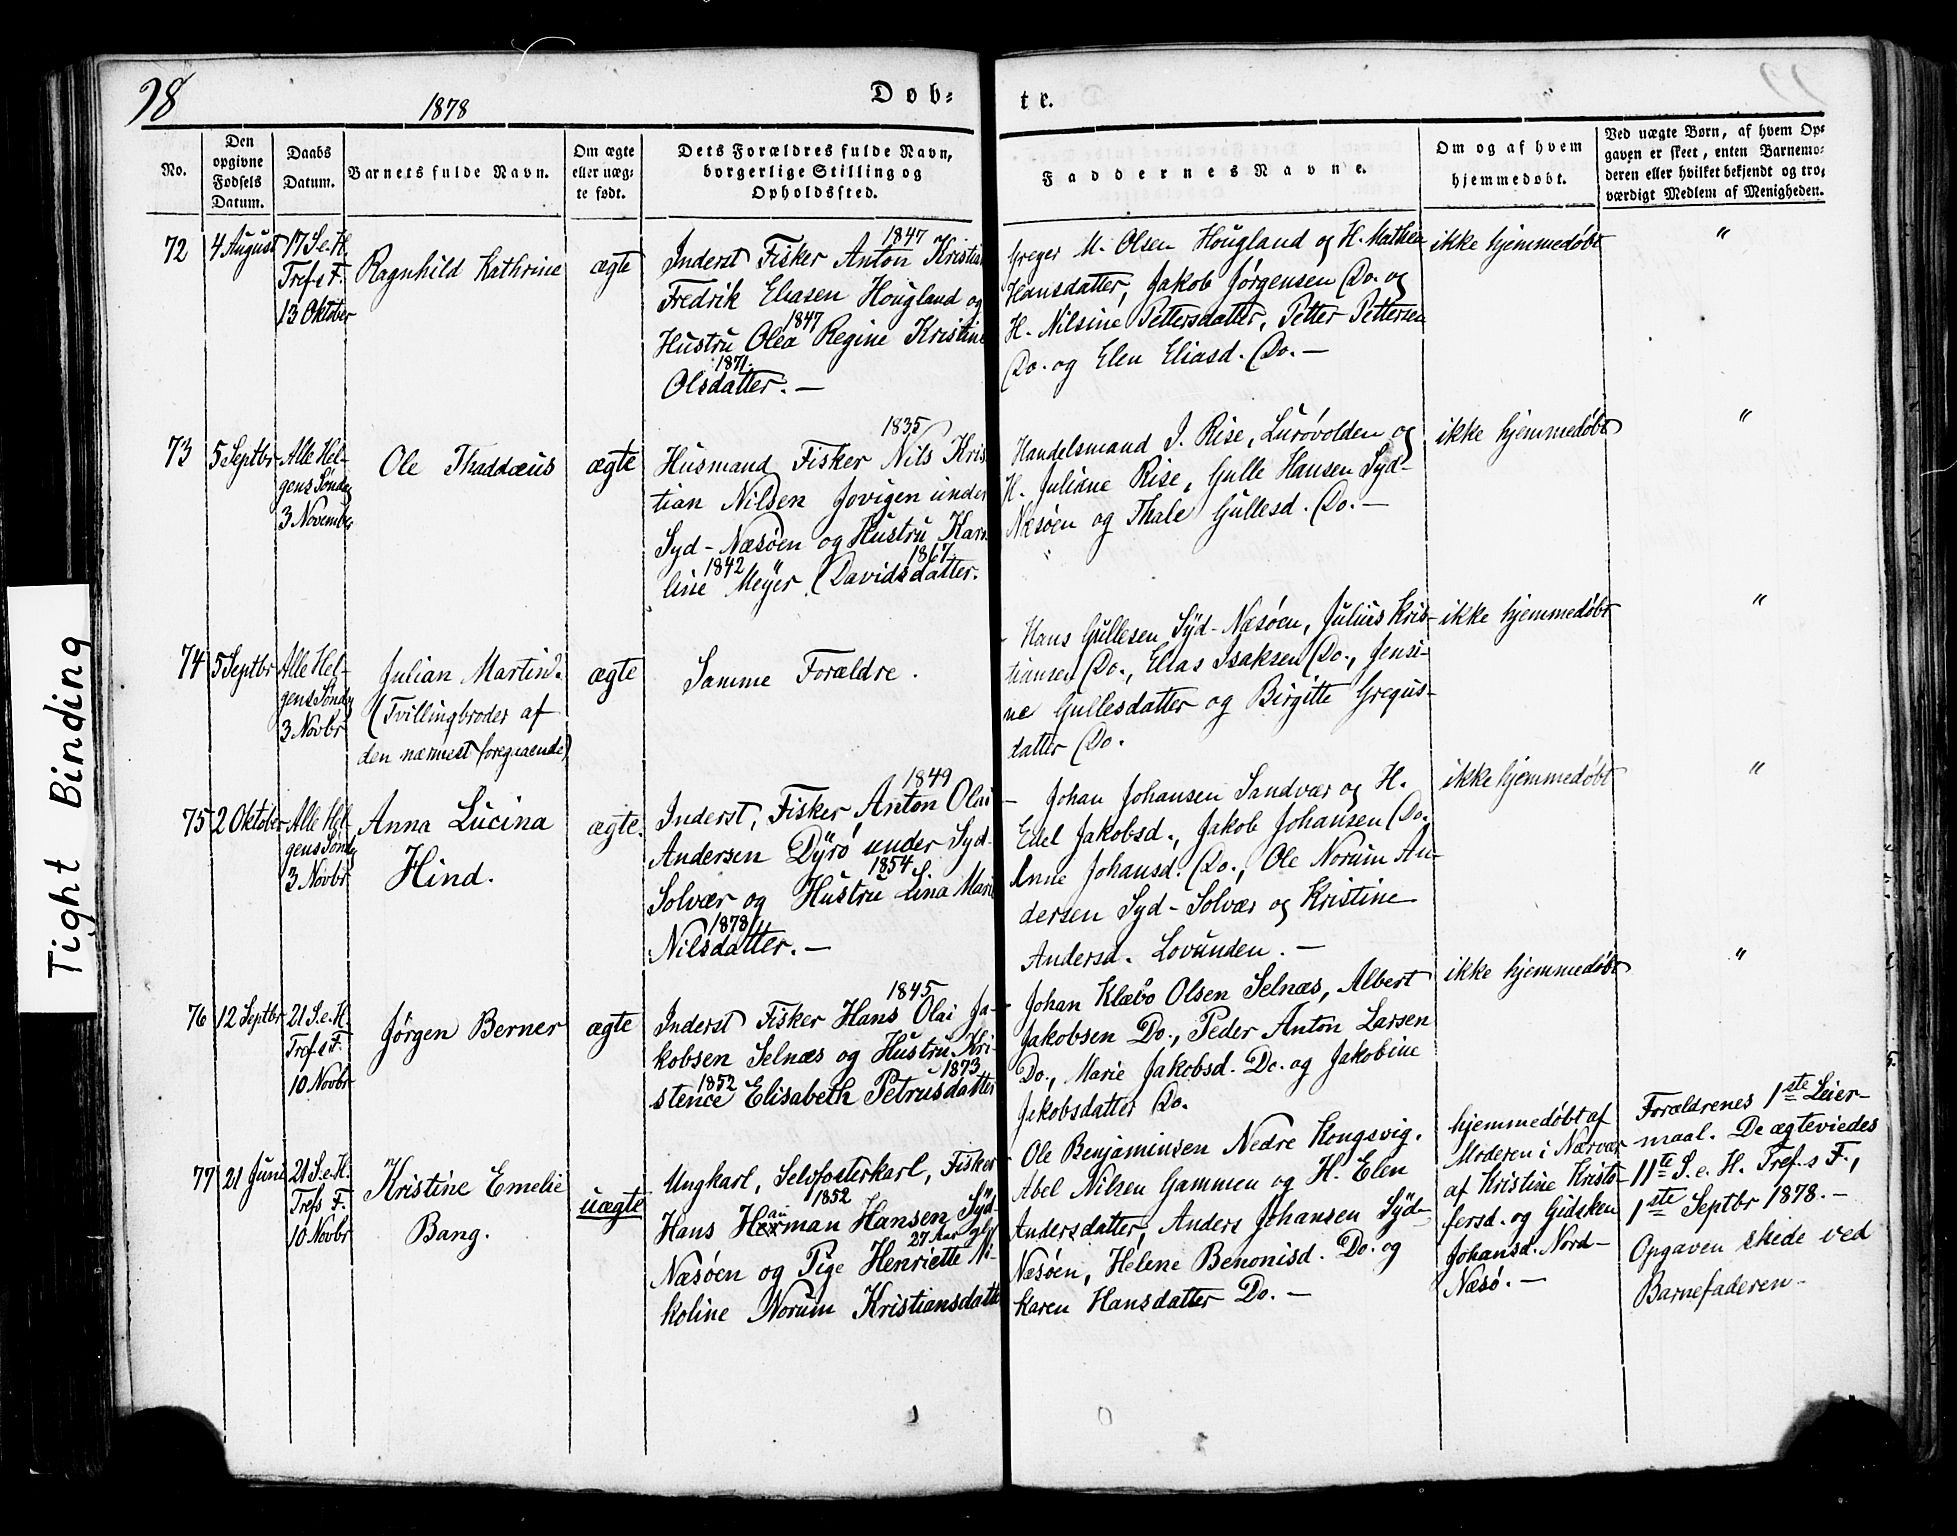 98
1878
Døb=
te.
No.
Den
opgivne
Fødsels
Datum.
Daabs
Datum.
Barnets fulde Navn.
Om ægte
eller uæg-
te født.
Dets Forældres fulde Navn,
borgerlige Stilling og
Opholdssted.
Faddernes Navne.
Om og af hvem
hjemmedøbt.
Ved uægte Børn, af hvem Op-
gaven er skeet, enten Barnemo-
deren eller hvilket bekjendt og tro-
værdigt Medlem af Menigheden.
72
4 August
17 S. e. H.
Tref.s F.
13 Oktober
Ragnhild Kathrine
ægte
1847
Inderst Fisker Anton Kristian
Fredrik Eliasen Hougland og
1847
Hustru Olea Regine Kristine
1871.
Olsdatter. —
Greger M. Olsen Hougland og H. Mathea
Hansdatter, Jakob Jørgensen Do. og
H. Nilsine Pettersdatter, Petter Pettersen
Do. og Elen Eliasd. Do. —
ikke hjemmedøbt
"
73
5 Septbr
Alle Hel-
gens Søndag
3 Novembr
Ole Thaddæus
ægte
1835
Husmand Fisker Nils Kris
tian Nilsen Jovigen under
Syd-Næsøen og Hustru Karo
1842 1867.
line Meyer Davidsdatter.
Handelsmand J. Rise, Lurøvolden og
H. Juliane Rise, Gulle Hansen Syd-
Næsøen og Thale Gullesd. Do. —
ikke hjemmedøbt
"
74
5 Septbr
Alle Hel-
gens Søndag
3 Novbr
Julian Martin
(Tvillingbroder af
den nærmest foregaaende)
ægte
Samme Forældre.
Hans Gullesen Syd-Næsøen, Julius Kris-
tiansen Do., Elias Isaksen Do., Jensi-
ne Gullesdatter og Birgitte Gregus-
datter Do.
ikke hjemmedøbt
"
75
2 Oktober
Alle Hel-
gens Søndg
3 Novbr
Anna Lucina
Hind.
ægte.
1849
Inderst, Fisker, Anton Olai
Andersen Dyrö under Syd-
1854
Solvær og Hustru Lina Mari
1878
Nilsdatter. —
Johan Johansen Sandvær og H.
Edel Jakobsd., Jakob Johansen Do.
Anne Johansd. Do., Ole Norum An-
dersen Syd-Solvær og Kristine
Andersd. Lovunden. —
ikke hjemmedøbt
"
76
12 Septbr
21 S. e. H.
Tref.s F.
10 Novbr
Jørgen Berner
ægte
1845
Inderst Fisker Hans Olai Ja-
kobsen Selnæs og Hustru Kri-
1852 1873
stence Elisabeth Petrusdatter
Johan Klæbo Olsen Selnæs, Albert
Jakobsen Do., Peder Anton Larsen
Do., Marie Jakobsd. Do. og Jakobine
Jakobsdatter Do.
ikke hjemmedøbt
"
77
21 Juni
21 S. e. H.
Trefs F.
10 Novbr
Kristine Emelie
Bang.
uægte
Ungkarl, Selvfosterkarl, Fisker
1852
Hans Herman Hansen Syd-
27 Aar gl.
Næsøen og Pige Henriette Ni-
koline Norum Kristiansdatter
Ole Benjaminsen Nedre Kongsvig,
Abel Nilsen Gammen og H. Elen
Andersdatter, Anders Johansen Syd-
Næsøen, Helene Benonisd. Do. og
Karen Hansdatter Do. —
hjemmedøbt af
Moderen i Nærvær
af Kristine Kristo-
fersd. og Gidsken
Johansd. Nord-
Næsø. —
Forældrenes 1ste Leier-
maal. De ægteviedes
11te S. e. H. Tref.s F.,
1ste Septbr 1878. —
Opgaven skede ved
Barnefaderen —
Tight Binding